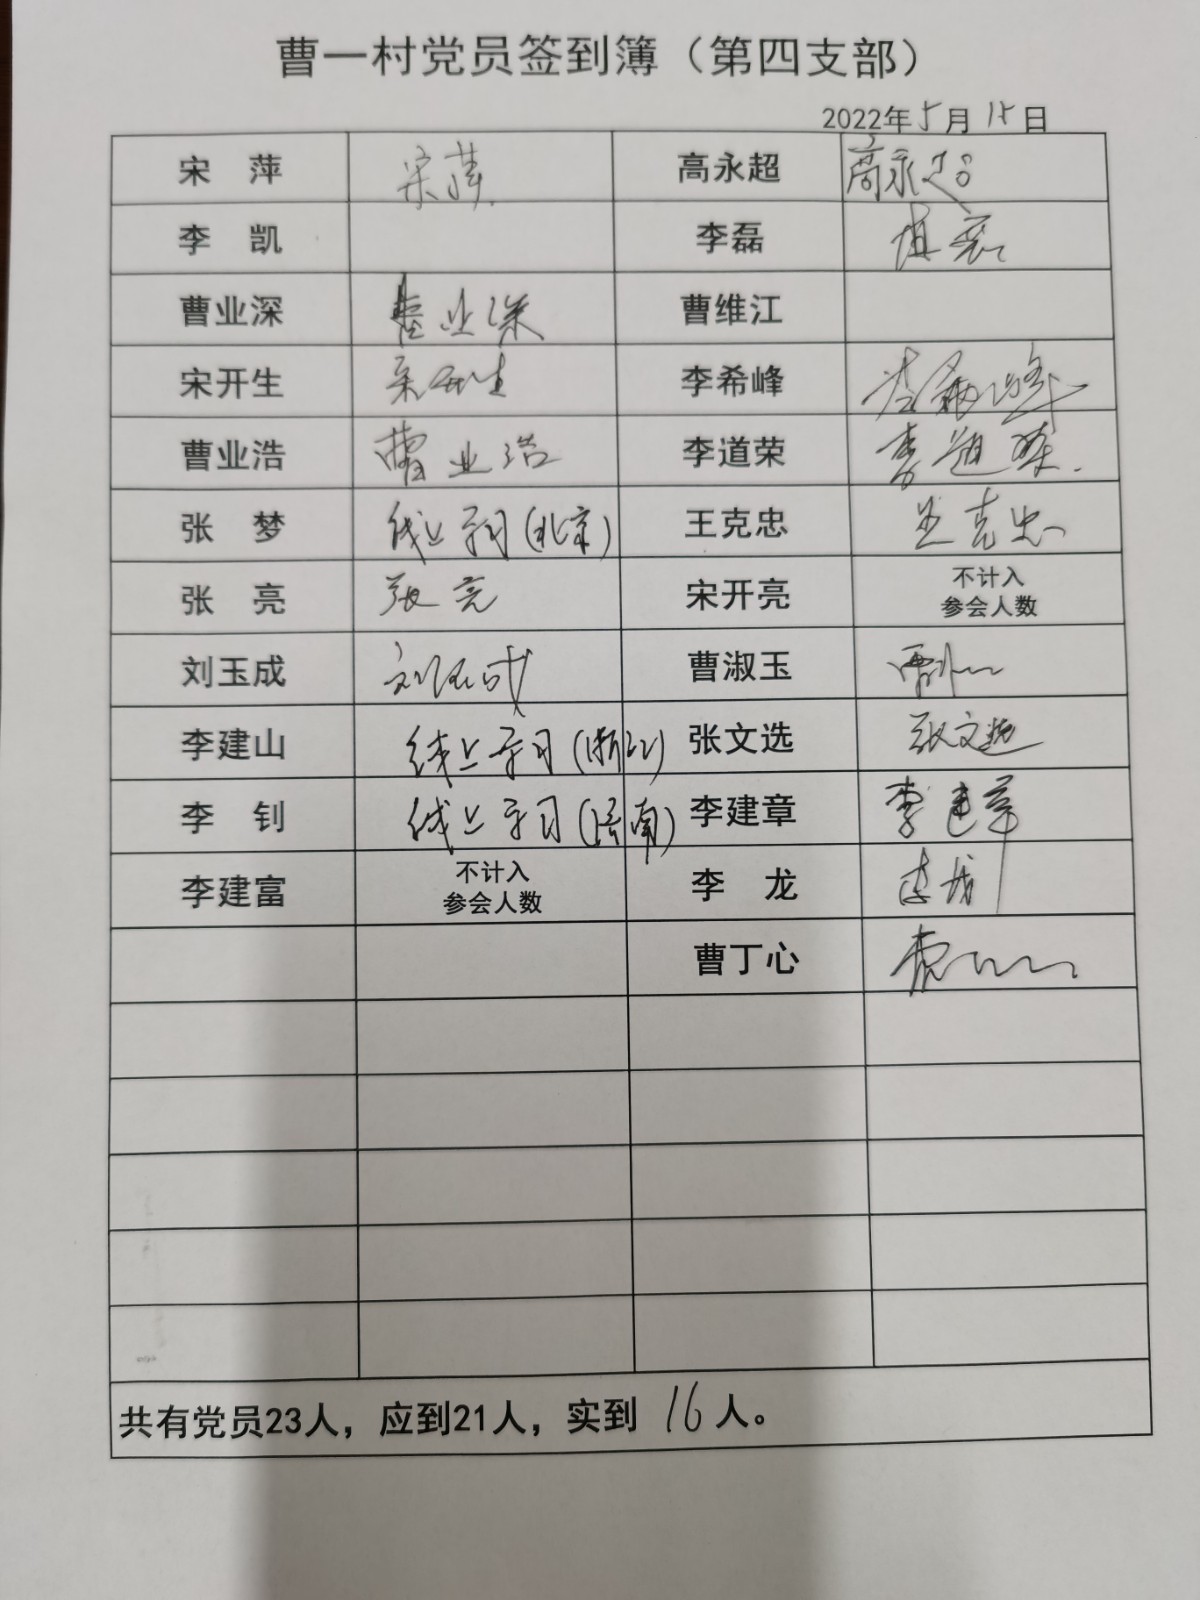 曹一村党员签到簿（第四支部）
2022年5月15日
宋　萍 宋萍 高永超 高永超
李　凯 李磊
曹业深 曹业深 曹维江
宋开生 宋开生 李希峰 李希峰
曹业浩 曹业浩 李道荣 李道荣
张　梦 线上学习(北京) 王克忠 王克忠
张　亮 张亮 宋开亮 不计入
参会人数
刘玉成 刘玉成 曹淑玉
李建山 线上学习(浙江) 张文选 张文选
李　钊 线上学习(济南) 李建章 李建章
李建富 不计入
参会人数 李　龙 李龙
曹丁心
共有党员23人，应到21人，实到 16 人。